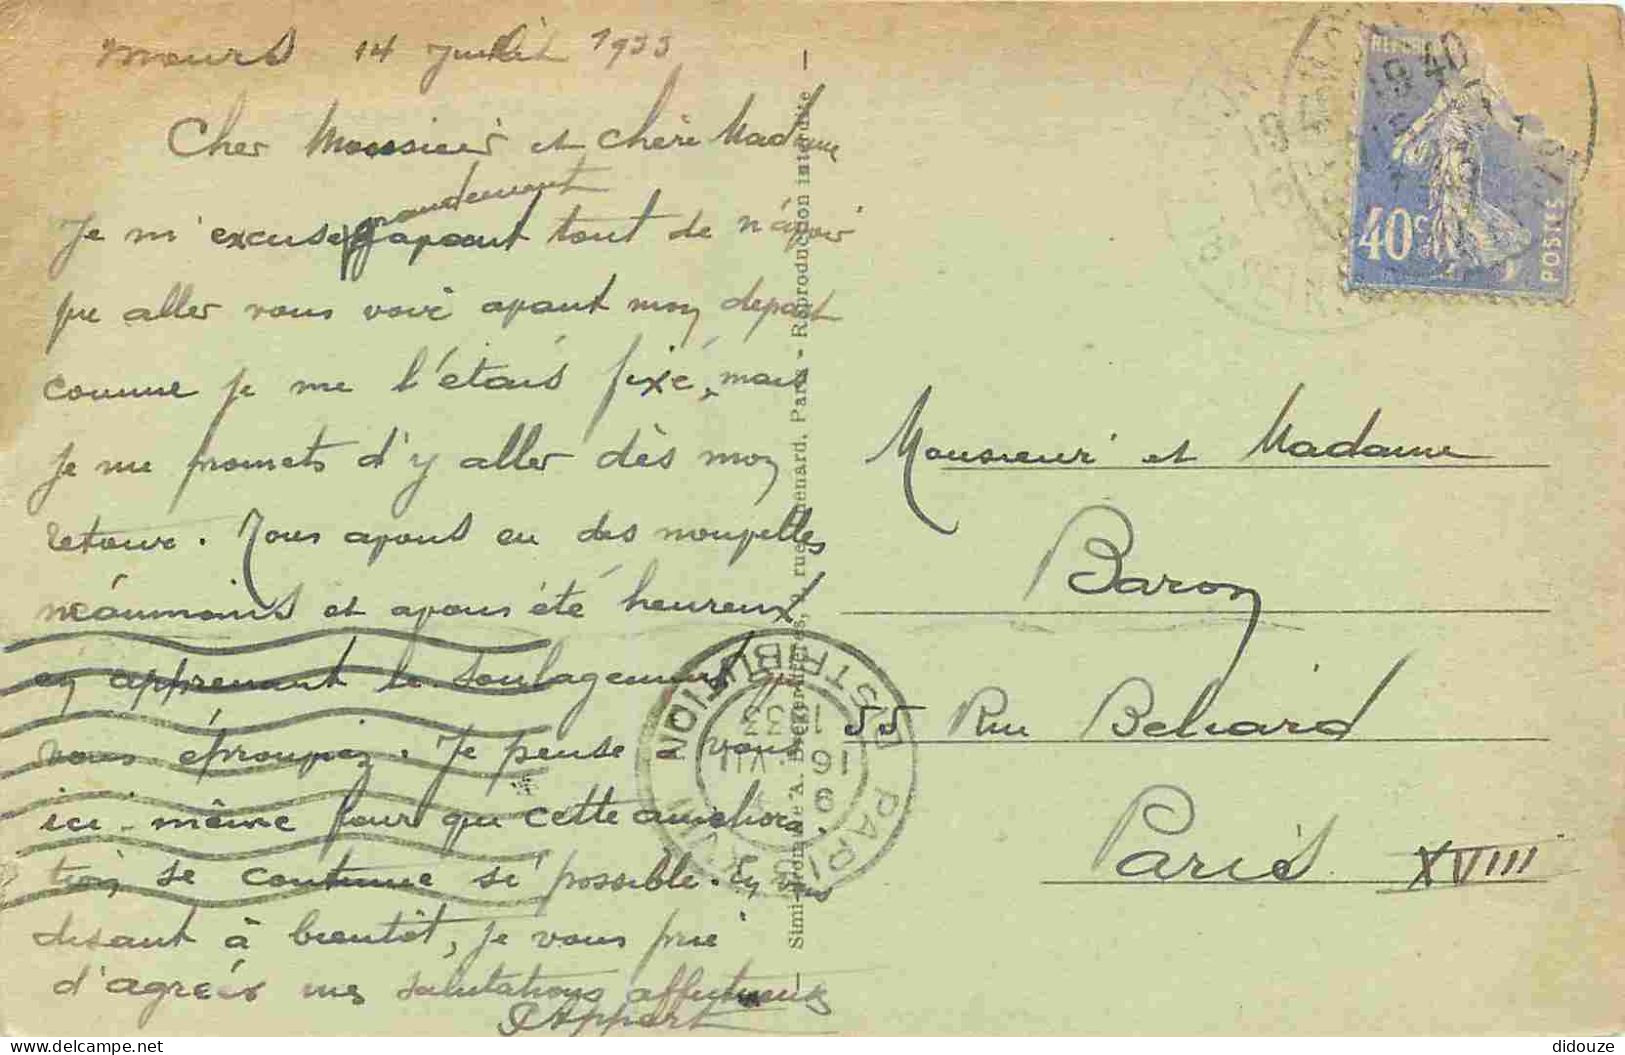 Mours 14 Juillet 1933
Cher Monsieur et chère Madame
grandement
Je m'excuse ayant tout de n'avoir
pu aller vous voir avant mon depart
comme je me l'étais fixé, mais
je me promets d'y aller dès mon
retour. Nous avons eu des nouvelles
néanmoins et avons été heureux
en apprenant le soulagement que
vous éprouviez. Je pense à vous
ici-même pour que cette améliora-
tion se continue si possible. En vous
disant à bientôt, je vous prie
d'agréer mes salutations affectueuses
Appert
Simi-Bromure A. Breger frères, 9, rue Thénard, Paris - Reproduction interdite
REPUBLIQUE
40c
POSTES
Monsieur et Madame
Baron
55 Rue Beliard
Paris XVIII
PARIS XVIII
DISTRIBUTION
9
16 VII
1933
didouze